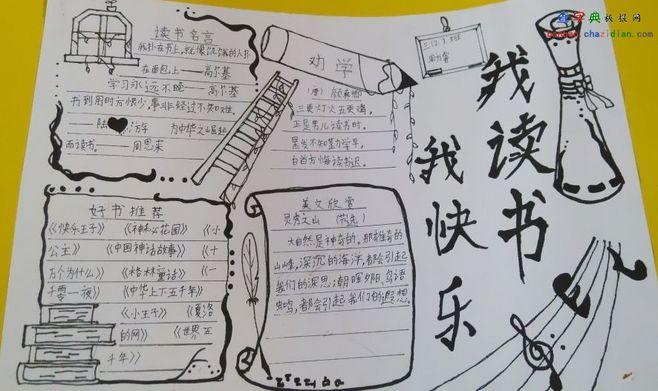 查字典板报网
banbao.chazidian.com
我读书
我快乐
读书名言
我扑在书上,就像饥饿的人扑
在面包上——高尔基
学习永远不晚——高尔基
书到用时方恨少,事非经过不知难。
——陆游
为中华之崛起
而读书——周恩来
劝学
(唐)颜真卿
三更灯火五更鸡,
正是男儿读书时。
黑发不知勤学早,
白首方悔读书迟。
三(2)班
好书推荐
《快乐王子》《神秘花园》《小
公主》《中国神话故事》《十
万个为什么》《格林童话》《一
千零一夜》《中华上下五千年》
《小王子》《夏洛
的网》《世界五
千年》
美文欣赏
灵秀之山(节选)
大自然是神奇的。那雄奇的
山峰,深沉的海洋,都会引起
我们的深思;朝晖夕阳,鸟语
虫鸣,都会引起我们的遐想。